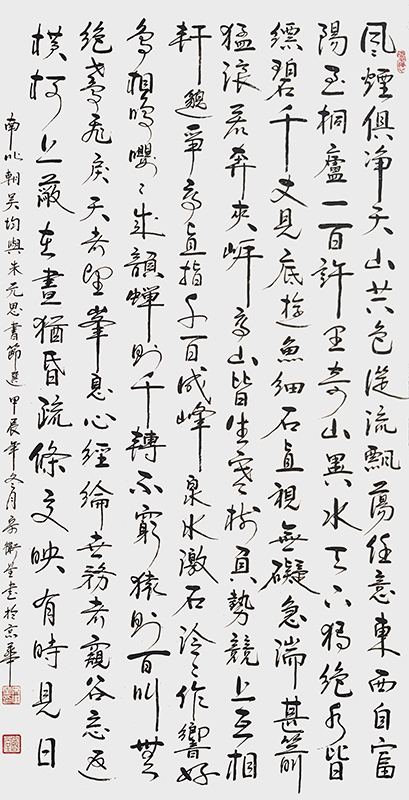 風煙俱净天山共色從流飄蕩任意東西自富
陽至桐廬一百許里奇山異水天下獨絕水皆
縹碧千丈見底遊魚細石直視無礙急湍甚箭
猛浪若奔夾岸高山皆生寒樹負勢競上互相
軒邈爭高直指千百成峰泉水激石泠々作響好
鳥相鳴嚶々成韻蟬則千轉不窮猿則百叫無
絕鳶飛戾天者望峯息心經綸世務者窺谷忘返
橫柯上蔽在晝猶昏疏條交映有時見日
南北朝吳均與朱元思書節選甲辰年冬月書於京華